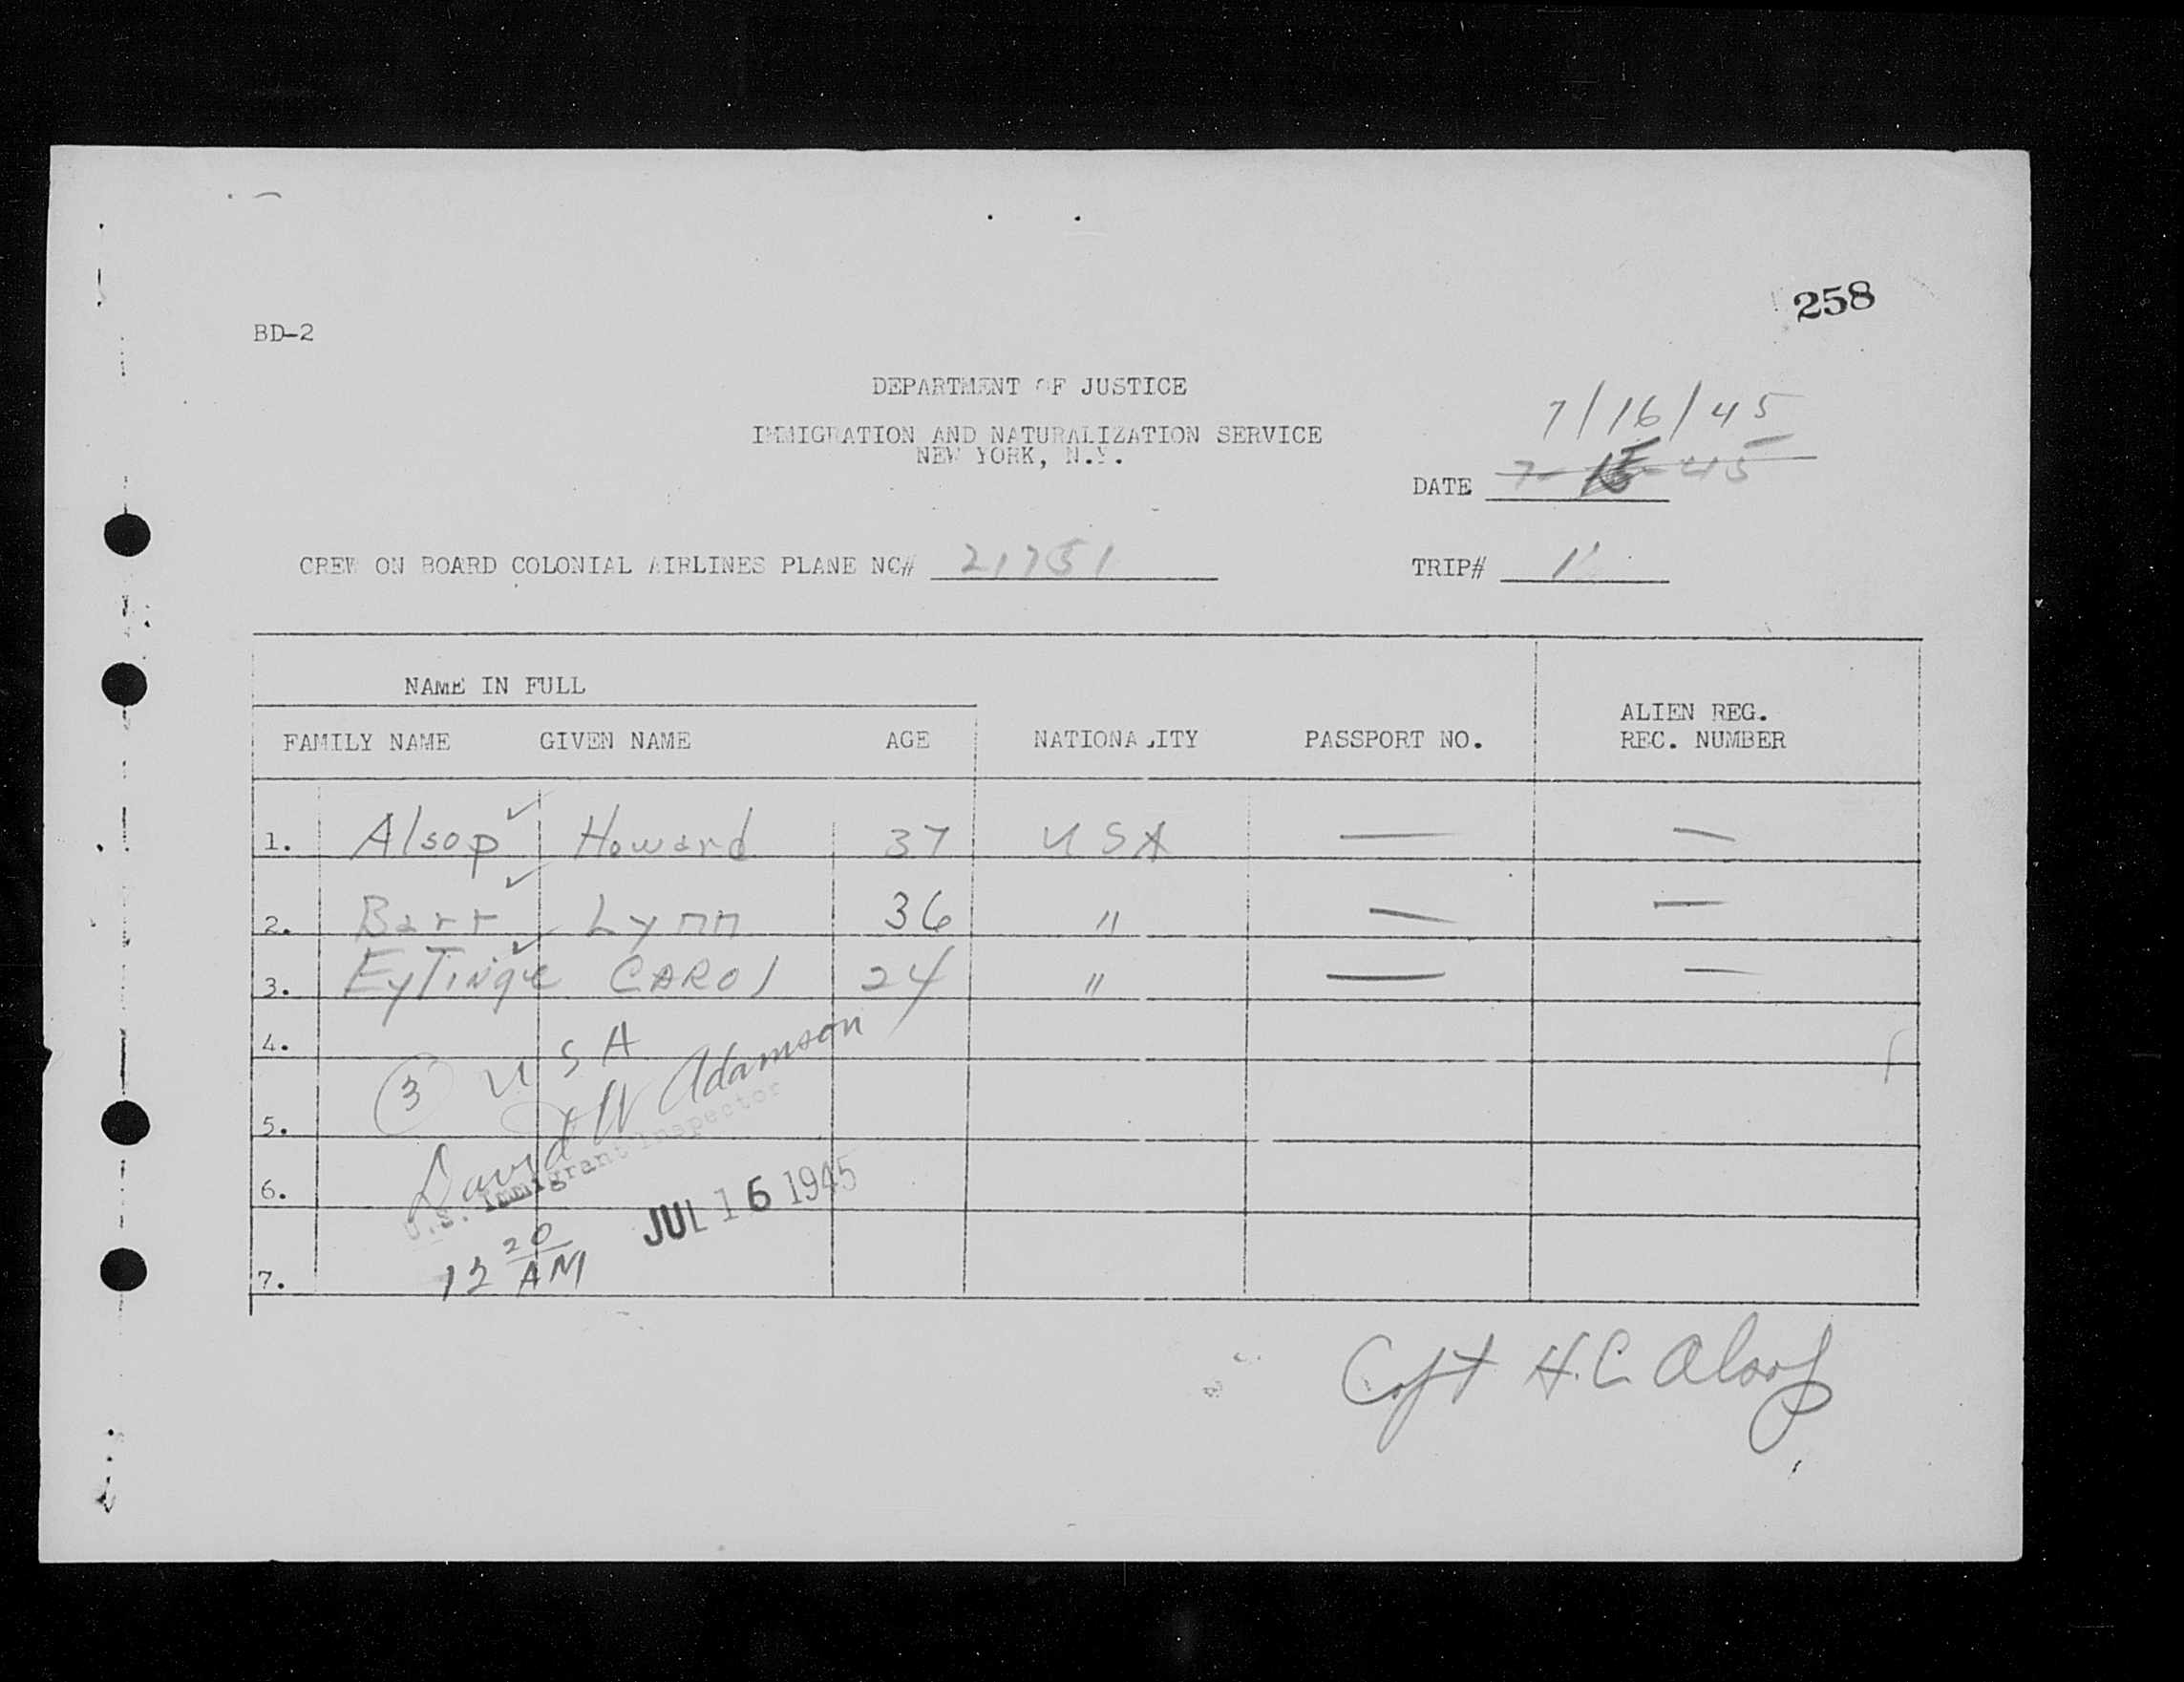 258
BD-2
DEPARTMENT OF JUSTICE
IMMIGRATION AND NATURALIZATION SERVICE
NEW YORK, N.Y.
7/16/45
DATE 7-15-45
CREW ON BOARD COLONIAL AIRLINES PLANE NC# 21751 TRIP# 1
NAME IN FULL
FAMILY NAME GIVEN NAME AGE NATIONALITY PASSPORT NO. ALIEN REG. REC. NUMBER
1. Alsop ✓ Howard 37 USA — —
2. Barr ✓ Lynn 36 " — —
3. EyTinge ✓ CAROl 24 " — —
4.
③ USA
5.
David W Adamson
U.S. Immigrant Inspector
6.
JUL 16 1945
12 20 AM
7.
Capt H.C. Alsop